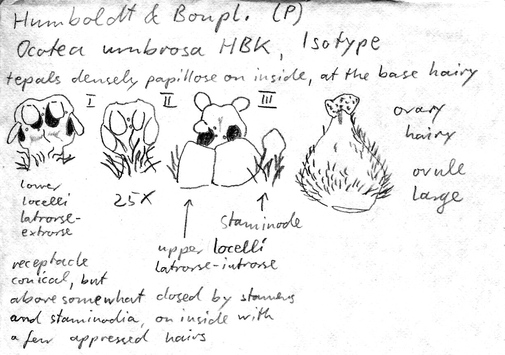 Humboldt & Bonpl. (P)
Ocotea umbrosa HBK, Isotype
tepals densely papillose on inside, at the base hairy
I II III
ovary
hairy
ovule
large
lower
locelli
latrorse-
extrorse
25X
staminode
upper locelli
latrorse-introrse
receptacle
conical, but
above somewhat closed by stamens
and staminodia, on inside with
a few appressed hairs